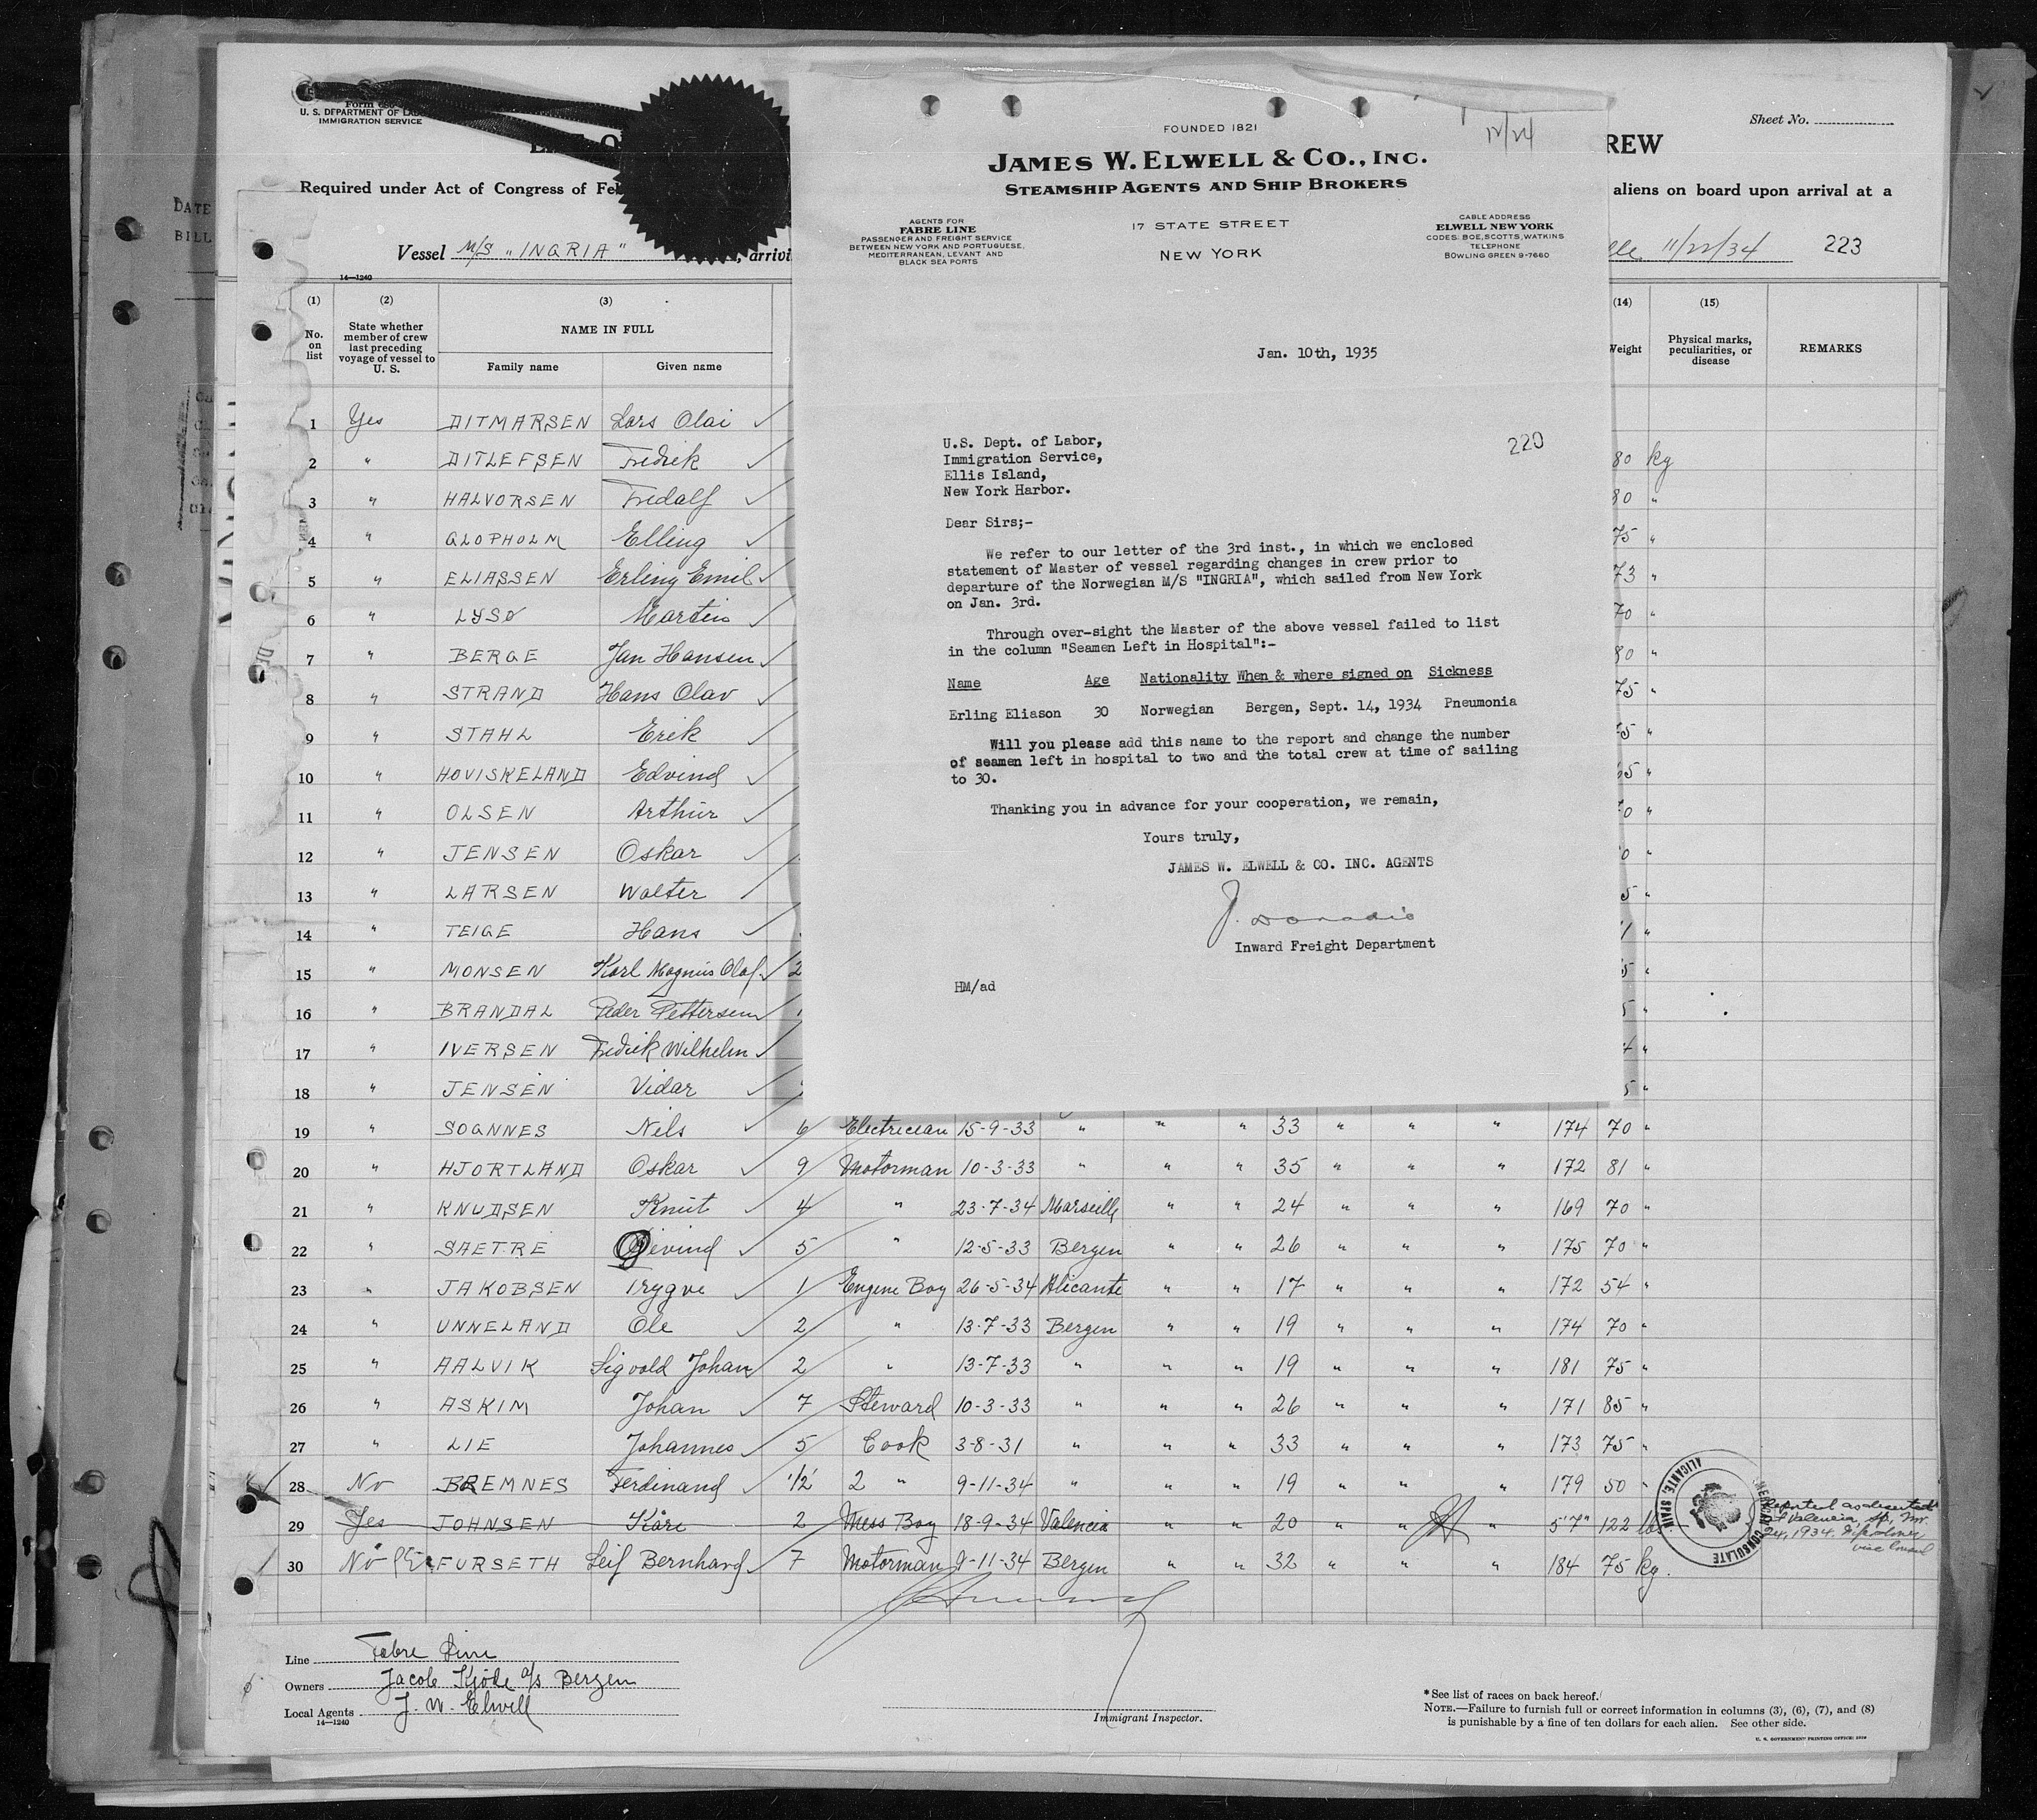 Form 680
U. S. DEPARTMENT OF LAB
IMMIGRATION SERVICE
REW
Sheet No.
Required under Act of Congress of Fe
aliens on board upon arrival at a
Vessel M/S "INGRIA" , arrivi
11/22/34 223
14—1240
DATE
BILL
(1) (2) (3) (14) (15)
No. on list
State whether member of crew last preceding voyage of vessel to U. S.
NAME IN FULL
Family name Given name
Weight
Physical marks, peculiarities, or disease
REMARKS
1 Yes DITMARSEN Lars Olai ✓
2 " DITLEFSEN Fredrik ✓ 80 kg
3 " HALVORSEN Fredalf ✓ 80 "
4 " GLOPHOLM Elling ✓ 75 "
5 " ELIASSEN Erling Emil ✓ 73 "
6 " LYSØ Martin ✓ 70 "
7 " BERGE Jan Hansen ✓ 80 "
8 " STRAND Hans Olav ✓ 75 "
9 " STAHL Erik ✓ 75 "
10 " HOVISKELAND Edvind ✓ 65 "
11 " OLSEN Arthur ✓ 70 "
12 " JENSEN Oskar ✓ 0 "
13 " LARSEN Walter ✓ 5 "
14 " TEIGE Hans ✓ 1 "
15 " MONSEN Karl Magnus Olaf ✓ 2 5 "
16 " BRANDAL Peder Pettersen ✓ 5 "
17 " IVERSEN Fredrik Wilhelm ✓ 4 "
18 " JENSEN Vidar ✓ 5 "
19 " SOGNNES Nils ✓ 6 Electrician 15-9-33 " " " 33 " " " 174 70 "
20 " HJORTLAND Oskar ✓ 9 Motorman 10-3-33 " " " 35 " " " 172 81 "
21 " KNUDSEN Knut ✓ 4 " 23-7-34 Marseille " " 24 " " " 169 70 "
22 " SAETRE Øivind ✓ 5 " 12-5-33 Bergen " " 26 " " " 175 70 "
23 " JAKOBSEN Trygve ✓ 1 Engine Boy 26-5-34 Alicante " " 17 " " " 172 54 "
24 " UNNELAND Ole ✓ 2 " 13-7-33 Bergen " " 19 " " " 174 70 "
25 " AALVIK Sigvold Johan ✓ 2 " 13-7-33 " " " 19 " " " 181 75 "
26 " ASKIM Johan ✓ 7 Steward 10-3-33 " " " 26 " " " 171 85 "
27 " LIE Johannes ✓ 5 Cook 3-8-31 " " " 33 " " " 173 75 "
28 No BREMNES Ferdinand ✓ 1/2 2 " 9-11-34 " " " 19 " " " 179 50 "
29 Yes JOHNSEN Kåre 2 Mess Boy 18-9-34 Valencia " " 20 " " " 5'7" 122 lb
30 No FURSETH Leif Bernhard ✓ 7 Motorman 9-11-34 Bergen " " 32 " " " 184 75 kg.
AMERICAN CONSULATE
ALICANTE, SPAIN
Reported as deserted
at Valencia, Sp, Nov.
24, 1934.
Vice Consul
Line Fabre Line
Owners Jacob Kjøde a/s Bergen
Local Agents J. W. Elwell
14—1240
Immigrant Inspector.
* See list of races on back hereof.
NOTE.—Failure to furnish full or correct information in columns (3), (6), (7), and (8)
is punishable by a fine of ten dollars for each alien. See other side.
U. S. GOVERNMENT PRINTING OFFICE:
12/24
FOUNDED 1821
JAMES W. ELWELL & CO., INC.
STEAMSHIP AGENTS AND SHIP BROKERS
AGENTS FOR
FABRE LINE
PASSENGER AND FREIGHT SERVICE
BETWEEN NEW YORK AND PORTUGUESE,
MEDITERRANEAN, LEVANT AND
BLACK SEA PORTS
17 STATE STREET
NEW YORK
CABLE ADDRESS
ELWELL NEW YORK
CODES: BOE, SCOTTS, WATKINS
TELEPHONE
BOWLING GREEN 9-7660
Jan. 10th, 1935
220
U.S. Dept. of Labor,
Immigration Service,
Ellis Island,
New York Harbor.
Dear Sirs;-
We refer to our letter of the 3rd inst., in which we enclosed
statement of Master of vessel regarding changes in crew prior to
departure of the Norwegian M/S "INGRIA", which sailed from New York
on Jan. 3rd.
Through over-sight the Master of the above vessel failed to list
in the column "Seamen Left in Hospital":-
Name Age Nationality When & where signed on Sickness
Erling Eliason 30 Norwegian Bergen, Sept. 14, 1934 Pneumonia
Will you please add this name to the report and change the number
of seamen left in hospital to two and the total crew at time of sailing
to 30.
Thanking you in advance for your cooperation, we remain,
Yours truly,
JAMES W. ELWELL & CO. INC. AGENTS
J. Donadio
Inward Freight Department
HM/ad